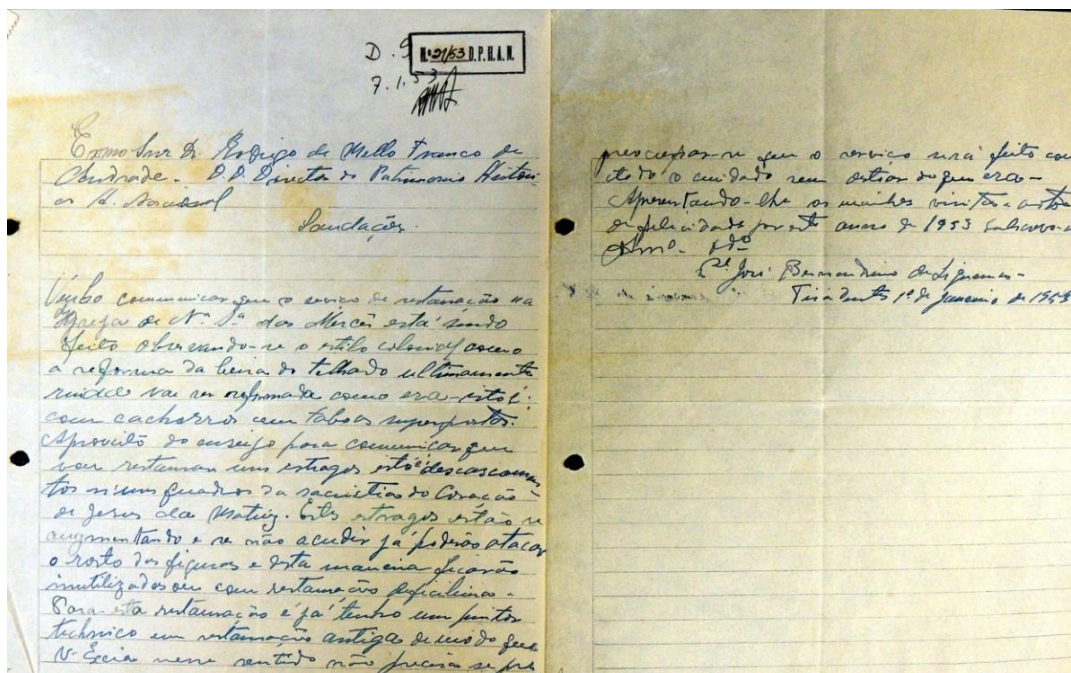 D. S
Nº 21/53 D.P.H.A.N.
7.1.53
Exmo Snr Dr Rodrigo de Mello Franco de
Andrade. D.D. Director do Patrimonio Histori-
co N. Nacional
Saudações.
Venho communicar que o serviço de restauração na
Igreja de Nª Sª das Mercês está sendo
feito observando-se o estilo colonial como
a reforma da beira do telhado ultimamente
ruida vai ser reformada como era isto é:
com cachorros com taboas superpostas.
Aproveito do enseijo para comunicar que
vou restaurar uns estragos isto é descascamen-
tos n'uns quadros da sacristia do Coração
de Jesus da Matriz. Estes estragos estão se
augmentando e se não acudir já poderão atacar
o rosto das figuras e desta maneira ficarão
inutilizados ou com restauração dificilima.
Para esta restauração e já tenho um pintor
technico em restauração antiga de modo que
V. Excia nesse sentido não precisa se pre
preocupar-se que o serviço será feito com
todo o cuidado sem do que era-
Apresentando-lhe os minhas visitas e votos
de felicidade por este anno de 1953 subscrevo-m
Admo.
Pe José Bernardino de Siqueira-
Tiradentes 1º de Janeiro de 1953